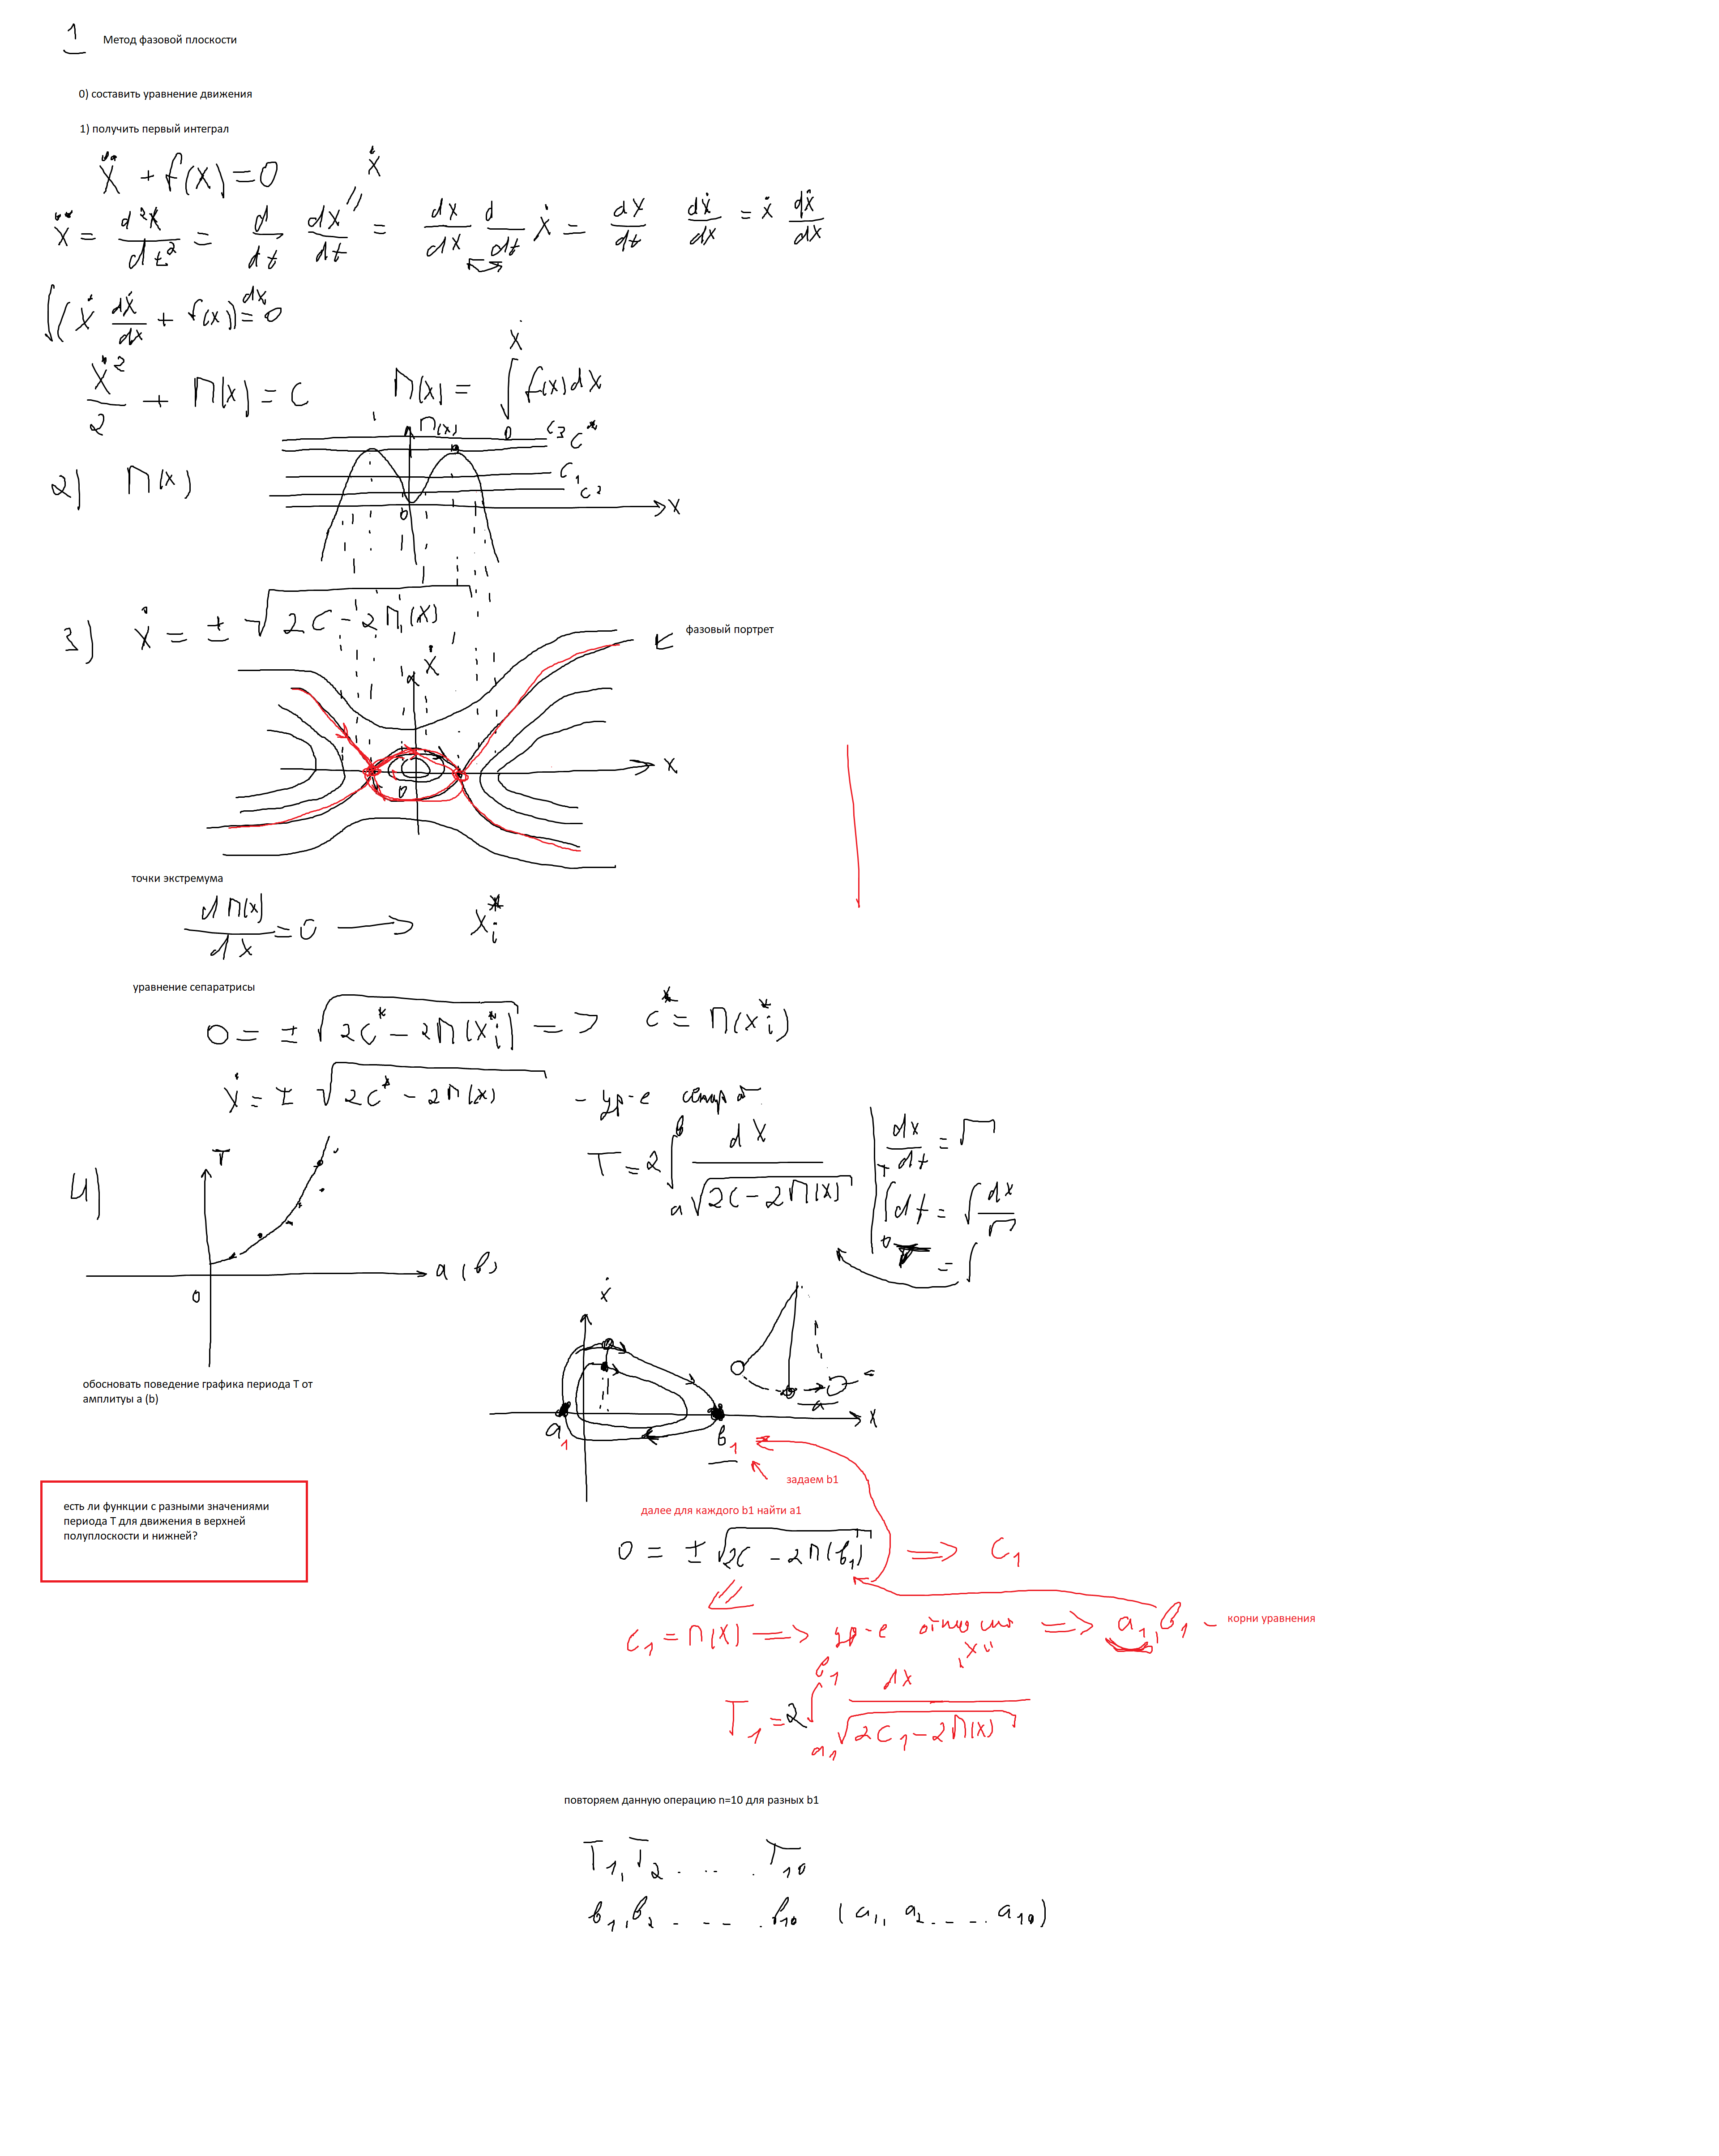 1 Метод фазовой плоскости
0) составить уравнение движения
1) получить первый интеграл
ẍ + f(x) = 0
ẋ
ẍ = d²x/dt² = d/dt dx/dt = dx/dx d/dt ẋ = dx/dt dẋ/dx = ẋ dẋ/dx
∫(ẋ dẋ/dx + f(x)) dx = 0
ẋ²/2 + П(x) = c П(x) = ∫₀ˣ f(x)dx
2) П(x)
П(x)
c₃ c*
c₁
c₂
0 x
3) ẋ = ± √(2c - 2П(x))
фазовый портрет
ẋ
x
0
точки экстремума
dП(x)/dx = 0 → xᵢ*
уравнение сепаратрисы
0 = ± √(2c* - 2П(xᵢ*)) => c* = П(xᵢ*)
ẋ = ± √(2c* - 2П(x)) - ур-е
T = 2∫ₐᵇ dx/√(2c - 2П(x))
dx/dt = √
∫₀ᵀ dt = ∫ dx/√
T = ∫
4)
T
a (b)
0
ẋ
a
x
a₁ b₁
обосновать поведение графика периода T от
амплитуы a (b)
задаем b1
далее для каждого b1 найти a1
есть ли функции с разными значениями
периода T для движения в верхней
полуплоскости и нижней?
0 = ± √(2c - 2П(b₁)) => c₁
c₁ = П(x) => ур-е => a₁, b₁ - корни уравнения
"x"
T₁ = 2∫ₐ₁ᵇ¹ dx/√(2c₁ - 2П(x))
повторяем данную операцию n=10 для разных b1
T₁, T₂ . . . . T₁₀
b₁, b₂ . - - . b₁₀ (a₁, a₂ . - - . a₁₀)